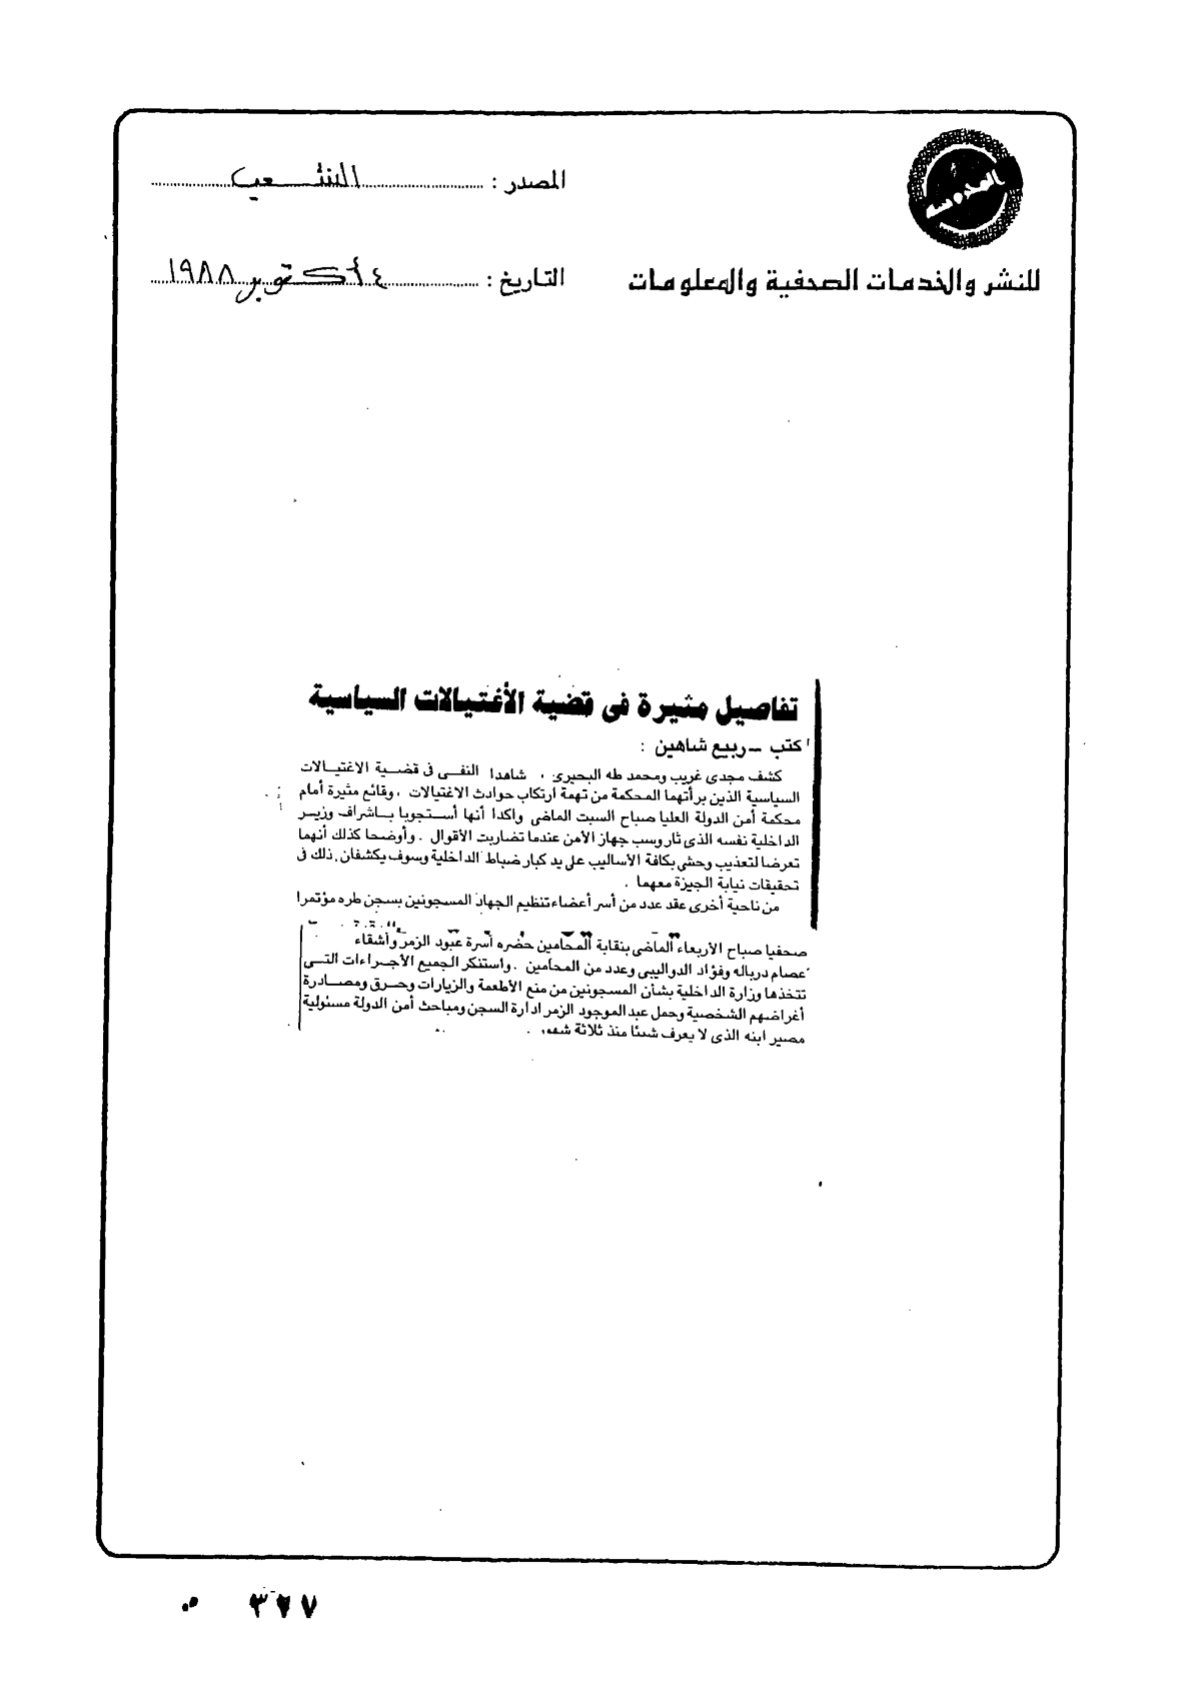 المحروسة
المصدر : الشعب
للنشر والخدمات الصحفية والمعلومات
التاريخ : ٤ أكتوبر ١٩٨٨
تفاصيل مثيرة فى قضية الأغتيالات السياسية
كتب ــ ربيع شاهين :
كشف مجدى غريب ومحمد طه البحيرى ، شاهدا النفـى فى قضـية الاغتيـالات
السياسية الذين برأتهما المحكمة من تهمة ارتكاب حوادث الاغتيالات ، وقائع مثيرة أمام
محكمة أمن الدولة العليا صباح السبت الماضى واكدا أنها أسـتجوبا بـاشراف وزيـر
الداخلية نفسه الذى ثار وسب جهاز الأمن عندما تضاربت الأقوال . وأوضحا كذلك أنهما
تعرضا لتعذيب وحشى بكافة الأساليب على يد كبار ضباط الداخلية وسوف يكشفان ذلك فى
تحقيقات نيابة الجيزة معهما .
من ناحية أخرى عقد عدد من أسر أعضاء تنظيم الجهاد المسجونين بسجن طره مؤتمرا
صحفيا صباح الأربعاء الماضى بنقابة المحامين حضره أسرة عبود الزمر وأشقاء
عصام درباله وفؤاد الدواليبى وعدد من المحامين . واستنكر الجميع الأجـراءات التـى
تتخذها وزارة الداخلية بشأن المسجونين من منع الأطعمة والزيارات وحـرق ومصـادرة
أغراضهم الشخصية وحمل عبد الموجود الزمر ادارة السجن ومباحث أمن الدولة مسئولية
مصير ابنه الذى لا يعرف شيئا منذ ثلاثة شهور .
٣٦٧